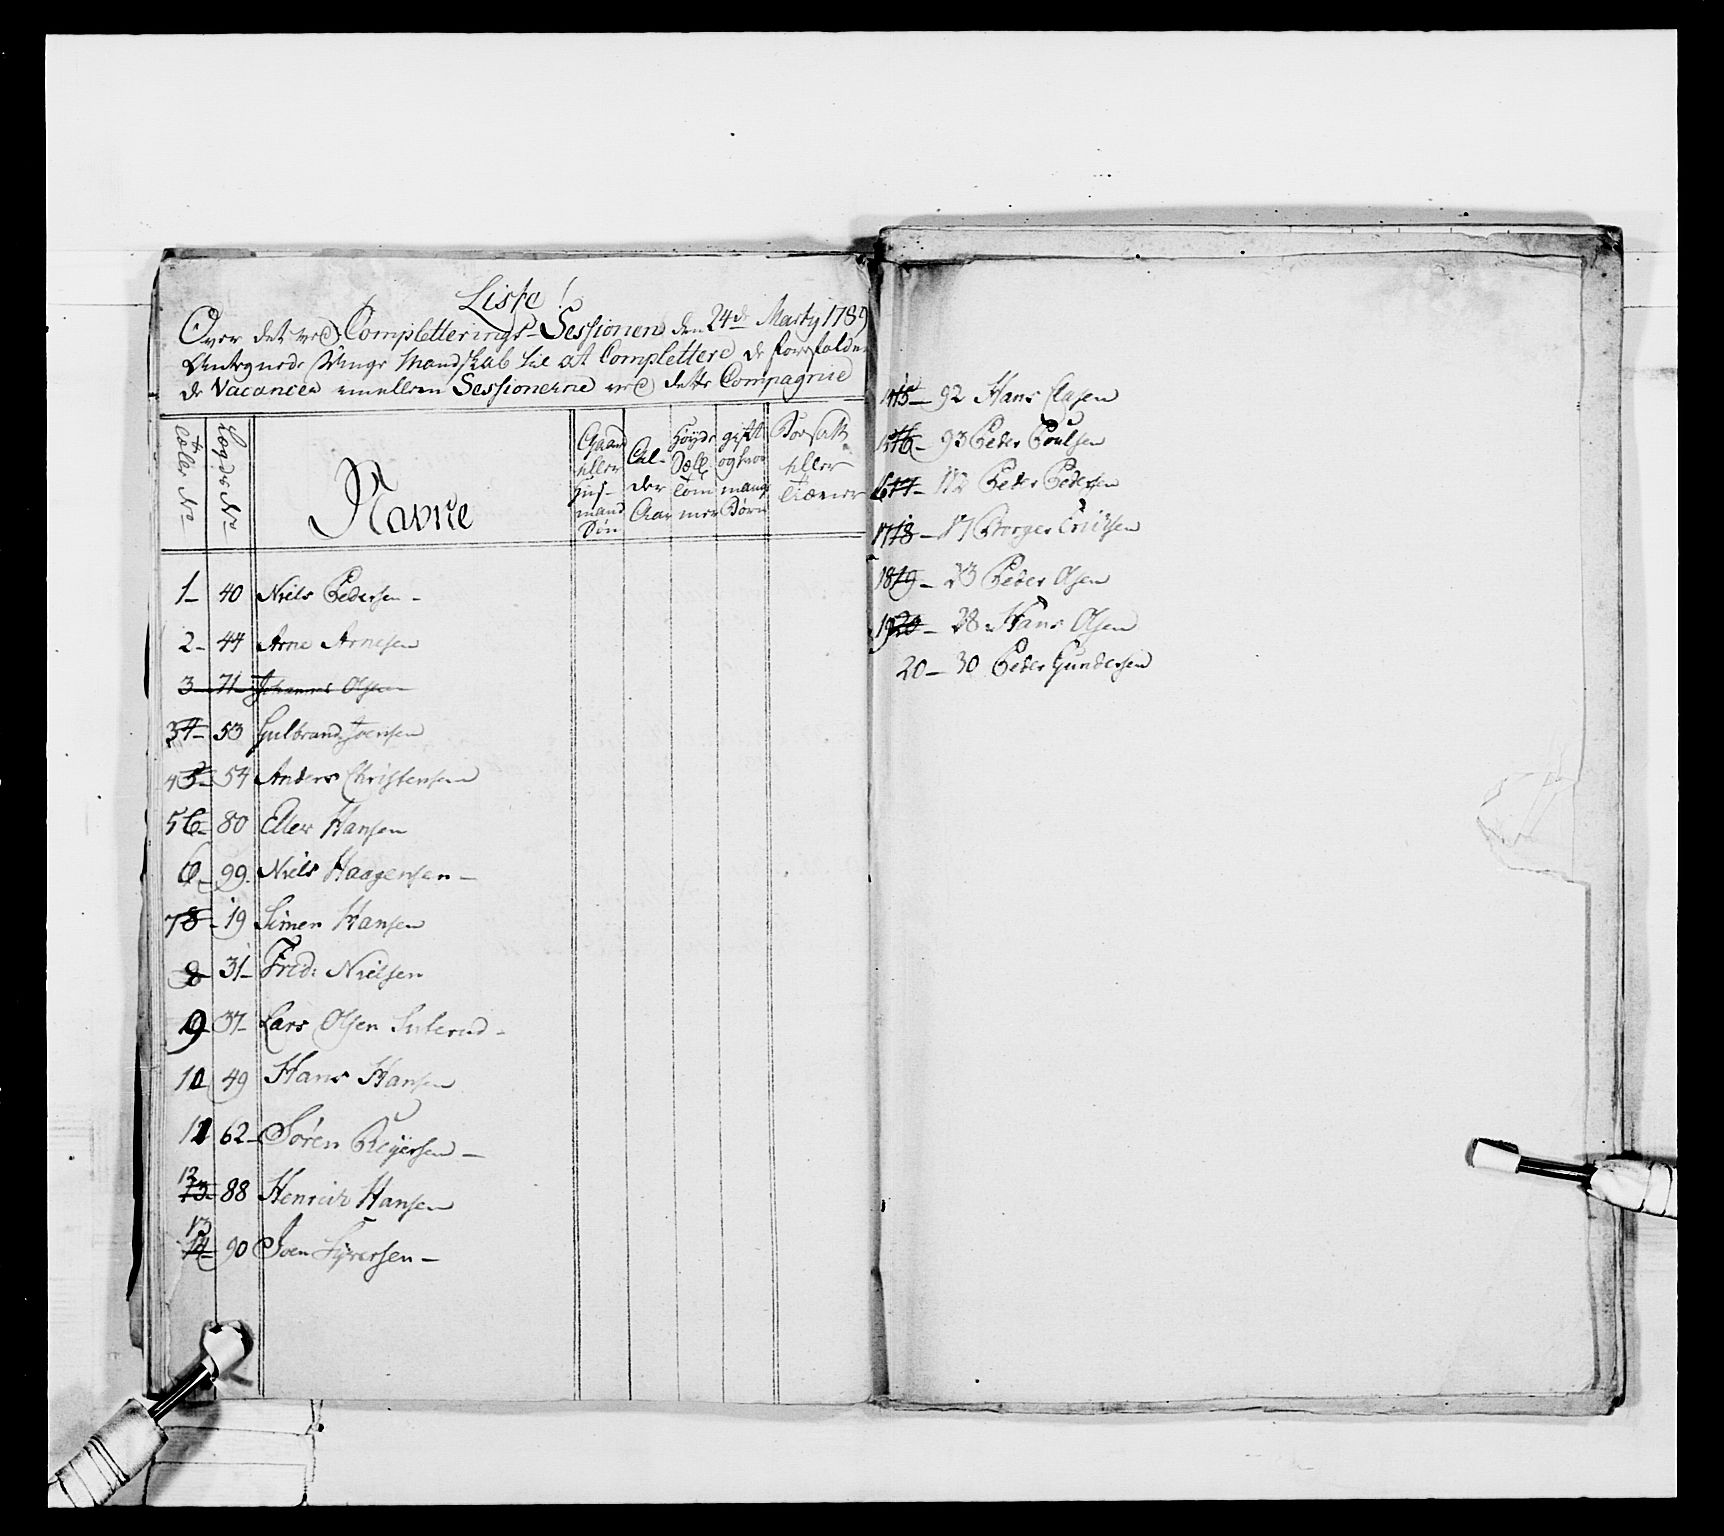 Liste!
Over det ved Completterings-Sessionen den 24de Marty 1789
Antegnede Unge Mandskab til at Complettere de forefalden
de Vacancer imellem Sessionerne ved dette Compagnie
Løbe No
Lægds No
Navne
Gaard eller Huus-mand Søn
Al-der Aar
Høyde Sæll Tom mer
gift og hvor mange Børn
eller
1 - 40 Niels Pedersen -
2 - 44 Arne Arnesen
3 - 71 Johannes Olsen
3 4 - 53 Gulbrand Joensen
4 5 - 54 Anders Christensen
5 6 - 80 Eller Hansen
6 - 99 Niels Haagensen -
7 8 - 19 Simen Hansen
8 31 - Fred: Nielsen
9 37 - Lars Olsen
10 49 Hans Hansen
11 62 - Søren Reyersen -
12 13 - 88 Henrich Hansen
13 14 - 90 Joen Syversen -
14 15 - 92 Hans Clasen
15 16 - 93 Peder Poulsen
16 17 - 112 Peder Pedersen
17 18 - 17 Borger Erichsen
18 19 - 23 Peder Olsen
19 20 - 28 Hans Olsen
20 - 30 Peder Gundersen